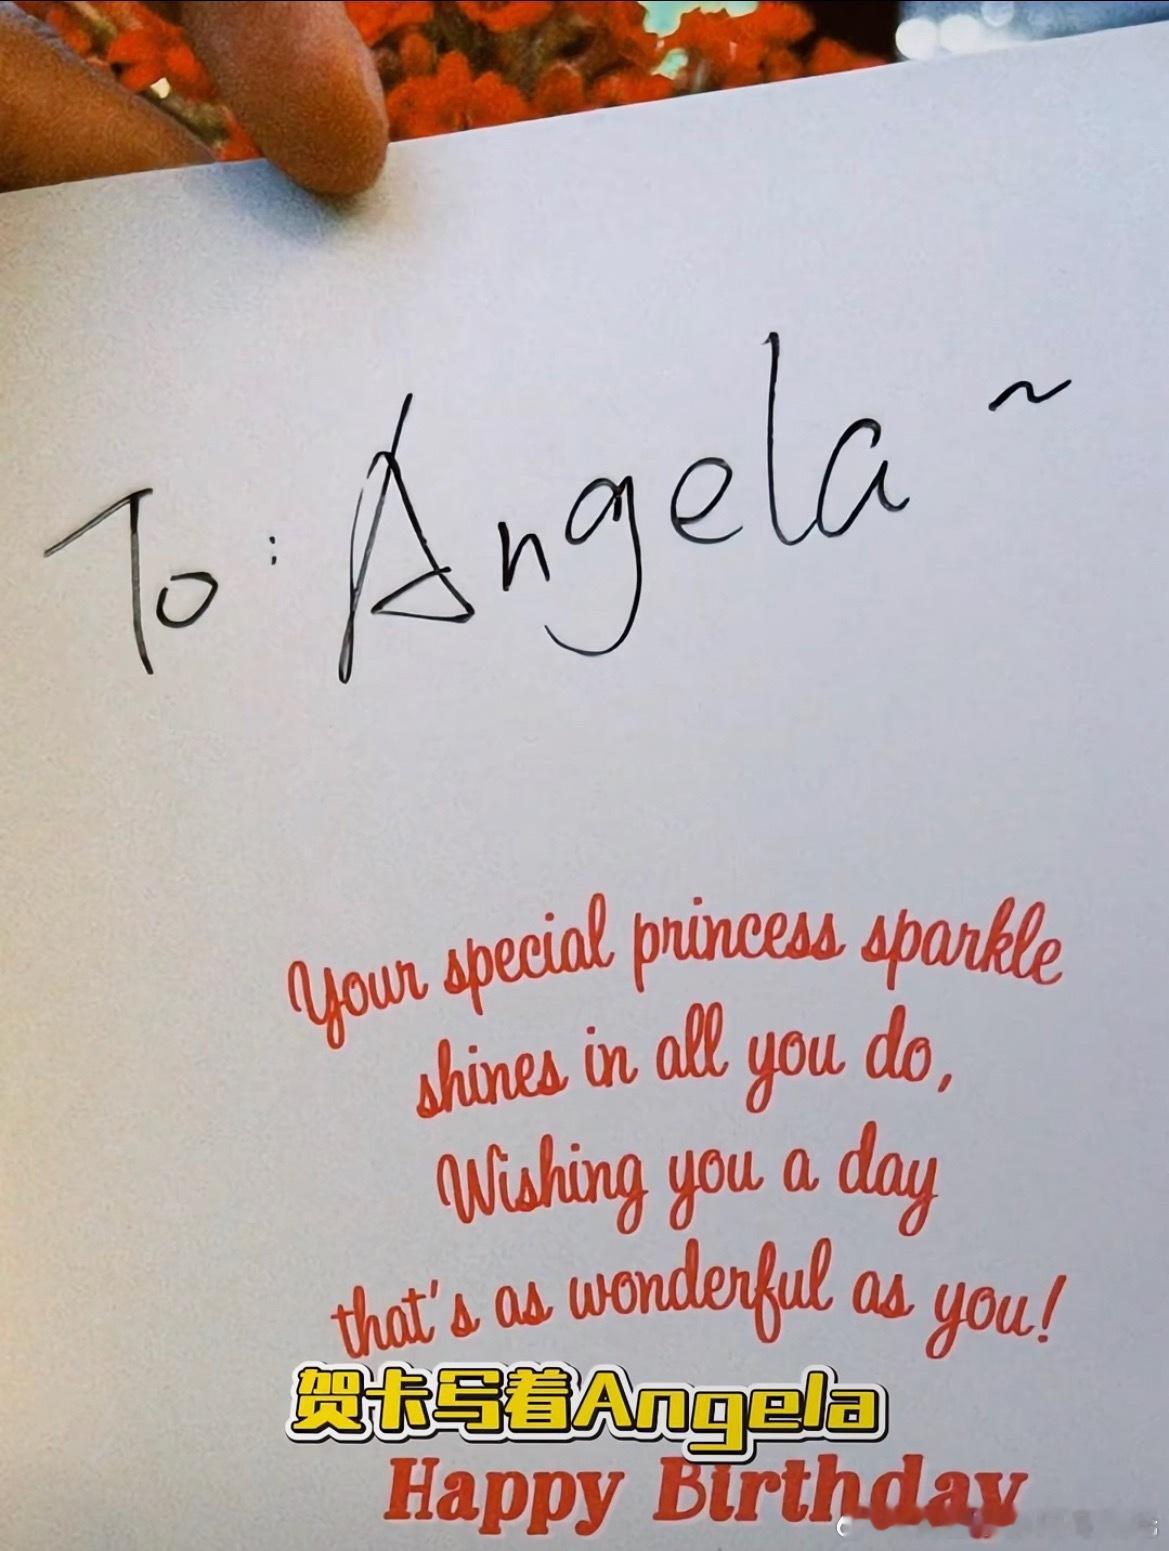 To: Angela ~
Your special princess sparkle
shines in all you do,
Wishing you a day
that's as wonderful as you!
贺卡写着Angela
Happy Birthday